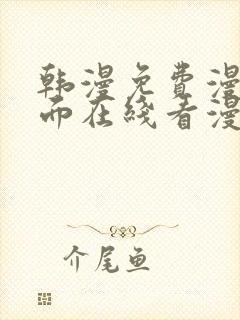 韩漫免费漫
而在线看漫
介尾鱼